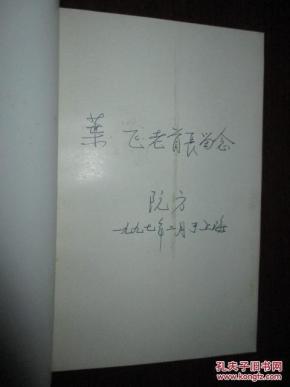 葉飞老首長留念
阮方
一九九七年二月于上海
孔夫子旧书网